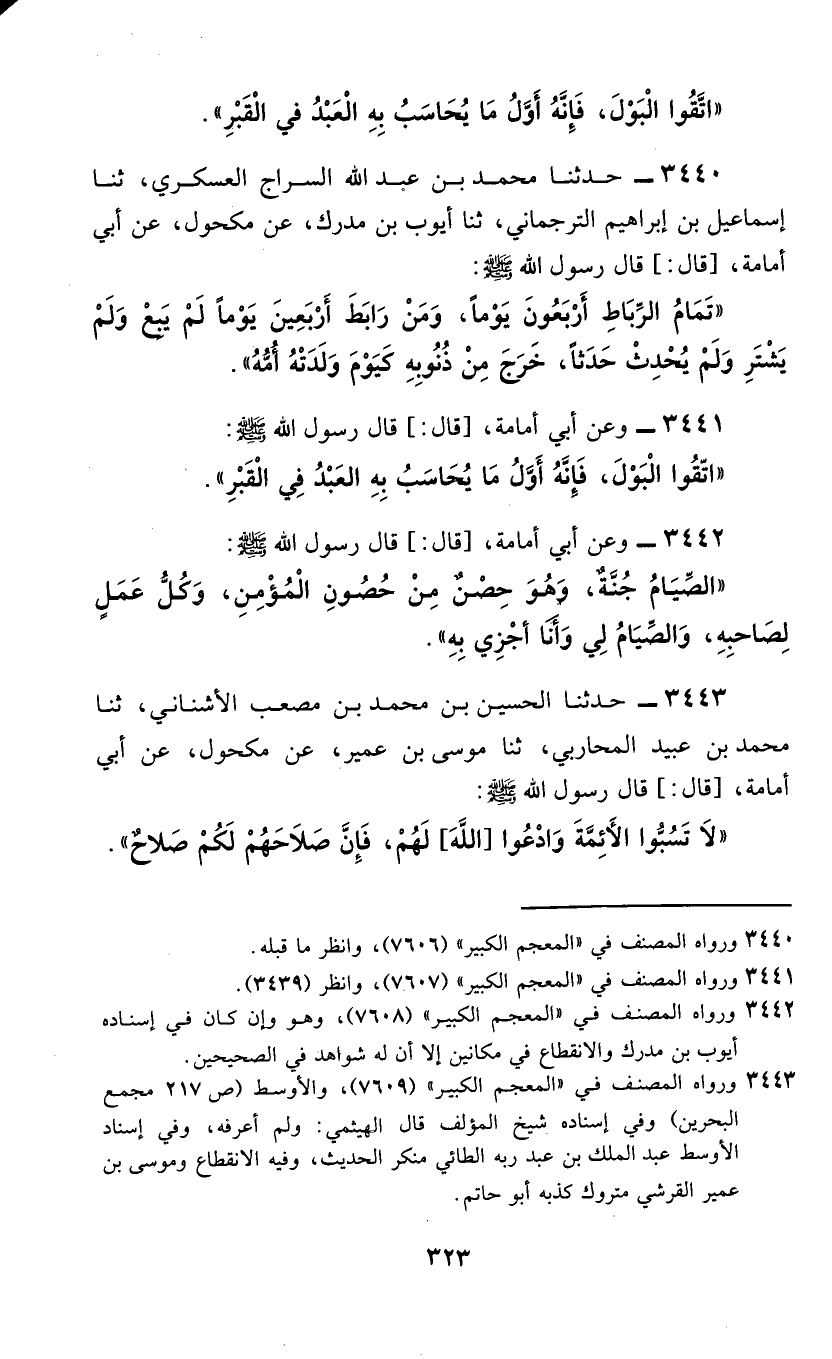 «اتَّقُوا الْبَوْلَ، فَإِنَّهُ أَوَّلُ مَا يُحَاسَبُ بِهِ الْعَبْدُ في الْقَبْرِ».
٣٤٤٠ ــ حـدثنـا محمـد بـن عبـد الله السراج العسكـري، ثنـا
إسماعيل بن إبراهيم الترجماني، ثنا أيوب بن مدرك، عن مكحول، عن أبي
أمامة، [قال:] قال رسول الله ﷺ:
«تَمَامُ الرِّبَاطِ أَرْبَعُونَ يَوْماً، وَمَنْ رَابَطَ أَرْبَعِينَ يَوْماً لَمْ يَبِعْ وَلَمْ
يَشْتَرِ وَلَمْ يُحْدِثْ حَدَثاً، خَرَجَ مِنْ ذُنُوبِهِ كَيَوْمَ وَلَدَتْهُ أُمُّهُ».
٣٤٤١ ــ وعن أبي أمامة، [قال:] قال رسول الله ﷺ:
«اتّقُوا الْبَوْلَ، فَإِنَّهُ أَوَّلُ مَا يُحَاسَبُ بِهِ العَبْدُ فِي الْقَبْرِ».
٣٤٤٢ ــ وعن أبي أمامة، [قال:] قال رسول الله ﷺ:
«الصِّيَامُ جُنَّةٌ، وَهُوَ حِصْنٌ مِنْ حُصُونِ الْمُؤْمِنِ، وَكُلُّ عَمَلٍ
لِصَاحِبِهِ، وَالصِّيَامُ لِي وَأَنَا أجْزِي بِهِ».
٣٤٤٣ ــ حـدثنا الحسيـن بـن محمـد بـن مصعب الأشنـانـي، ثنـا
محمد بن عبيد المحاربي، ثنا موسى بن عمير، عن مكحول، عن أبي
أمامة، [قال:] قال رسول الله ﷺ:
«لَا تَسُبُّوا الأَئِمَّةَ وَادْعُوا [اللَّهَ] لَهُمْ، فَإِنَّ صَلَاحَهُمْ لَكُمْ صَلاحٌ».
٣٤٤٠ ورواه المصنف في «المعجم الكبير» (٧٦٠٦)، وانظر ما قبله.
٣٤٤١ ورواه المصنف في «المعجم الكبير» (٧٦٠٧)، وانظر (٣٤٣٩).
٣٤٤٢ ورواه المصنف في «المعجم الكبير» (٧٦٠٨)، وهـو وإن كـان فـي إسنـاده
أيوب بن مدرك والانقطاع في مكانين إلا أن له شواهد في الصحيحين.
٣٤٤٣ ورواه المصنف في «المعجم الكبير» (٧٦٠٩)، والأوسط (ص ٢١٧ مجمع
البحرين) وفي إسناده شيخ المؤلف قال الهيثمي: ولم أعرفه، وفي إسناد
الأوسط عبد الملك بن عبد ربه الطائي منكر الحديث، وفيه الانقطاع وموسى بن
عمير القرشي متروك كذبه أبو حاتم.
٣٢٣